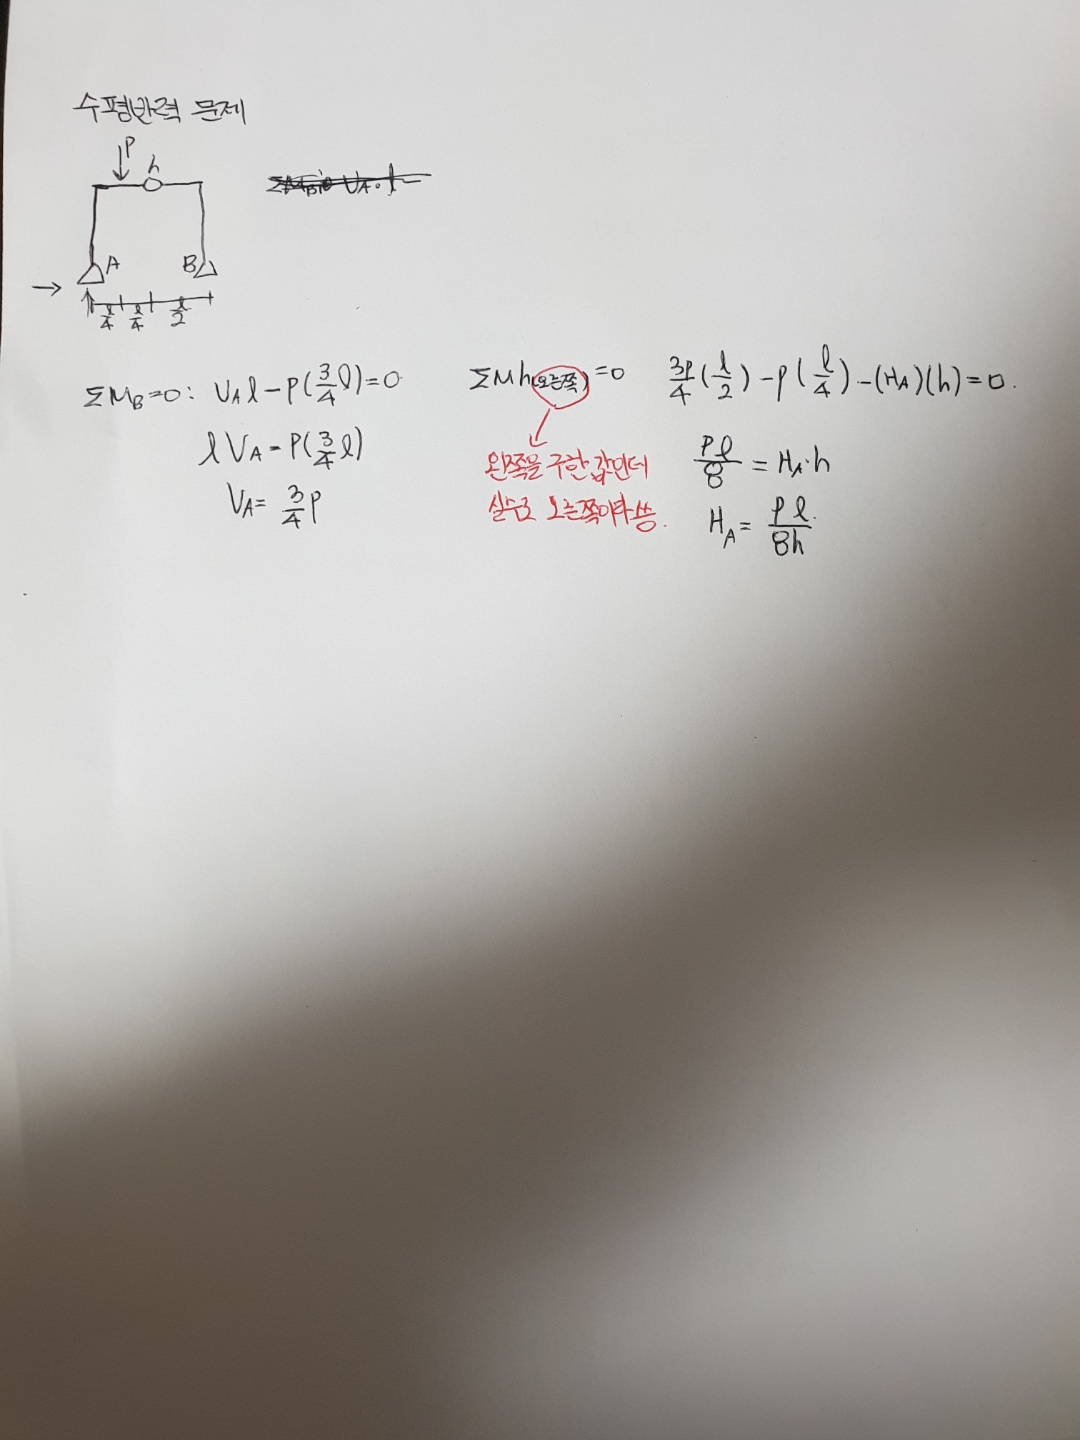 수평반력 문제
P
h
ΣM_B=0 V_A·l
A
B
l/4 l/4 l/2
ΣM_B=0: V_A l-P(3/4 l)=0
l V_A = P(3/4 l)
V_A= 3/4 P
ΣMh(오른쪽)=0 3P/4(l/2)-P(l/4)-(H_A)(h)=0.
왼쪽을 구한 값인데
실수로 오른쪽이라 씀.
Pl/8 = H_A·h
H_A= Pl/8h